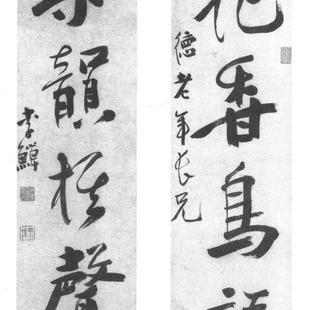 德老年長兄
花香鳥語
韻棋聲
李鱓